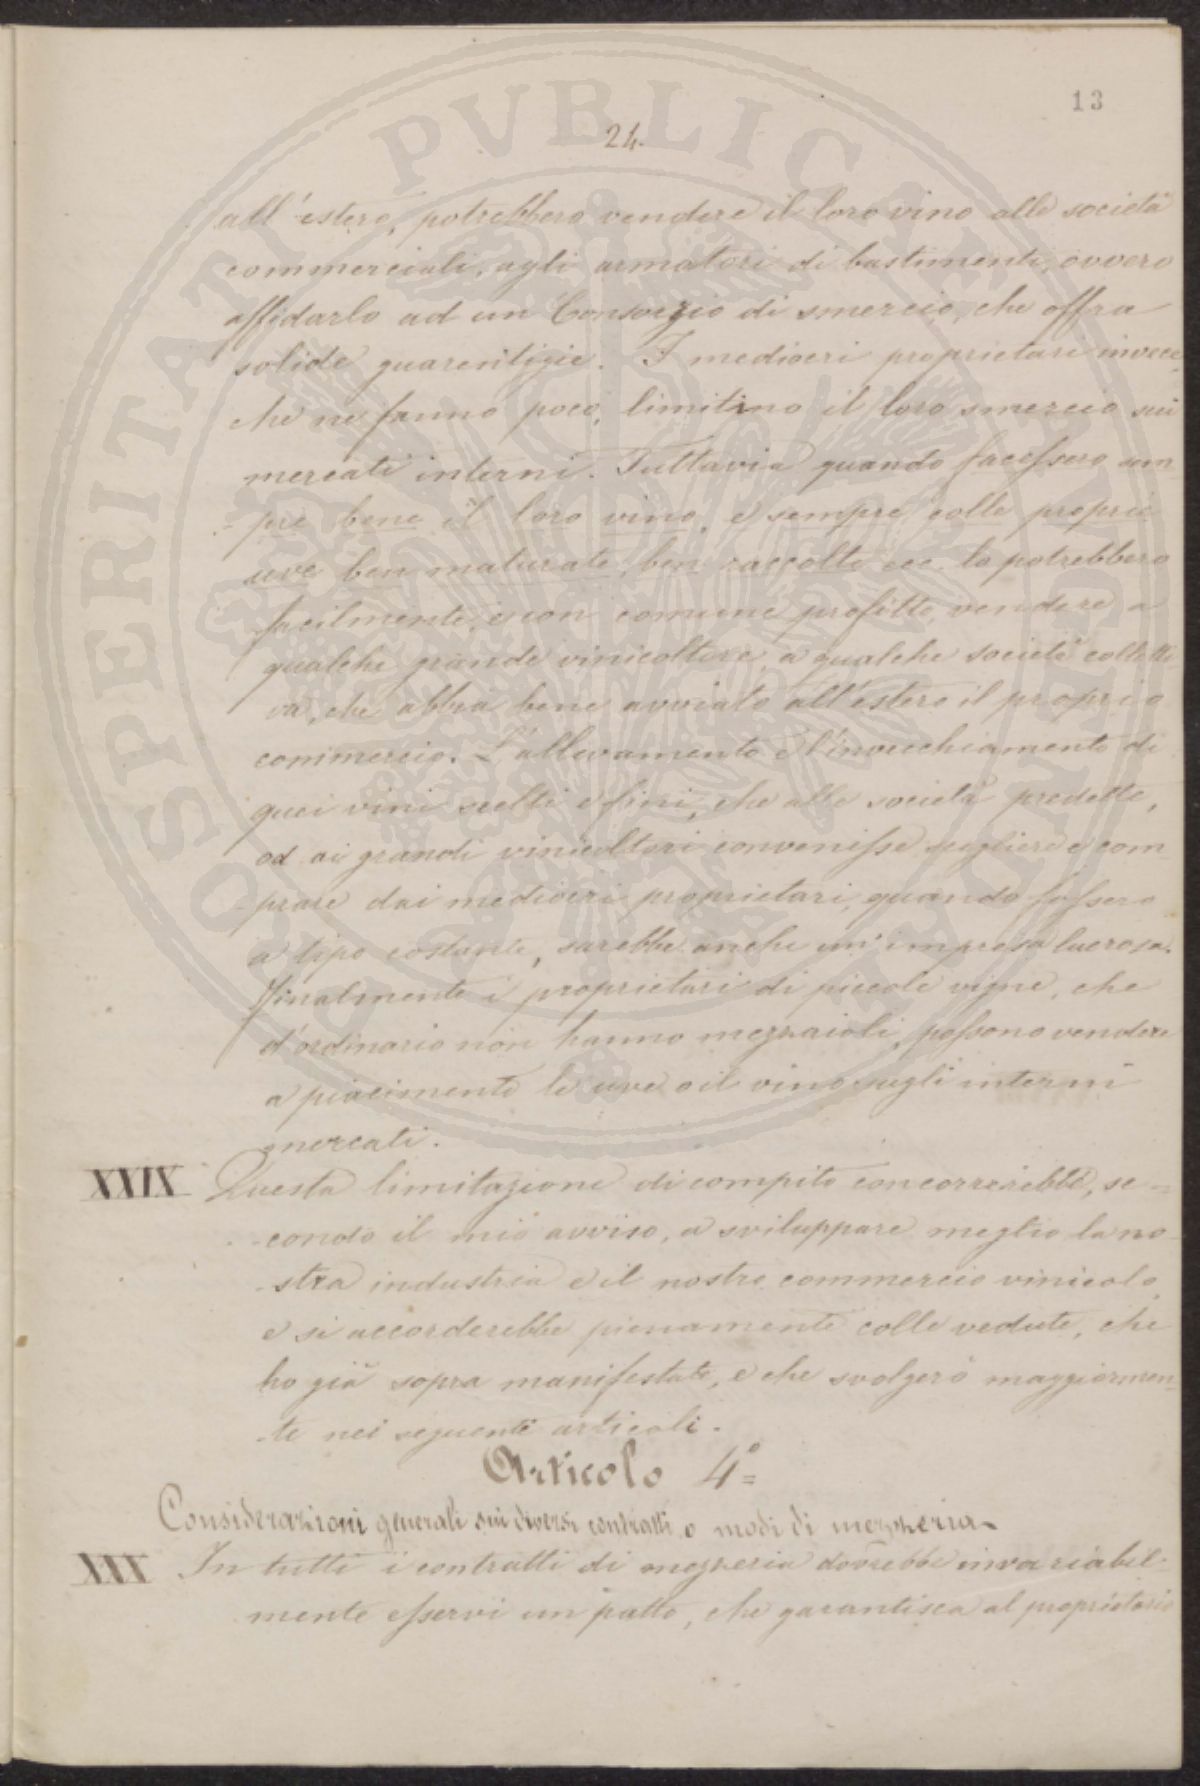 13
24.
all'estero, potrebbero vendere il loro vino alle società
commerciali, agli armatori di bastimenti, ovvero
affidarlo ad un Consorzio di smercio, che offra
solide guarentigie. I mediocri proprietari invece
che ne fanno poco, limitino il loro smercio sui
mercati interni. Tuttavia quando facessero sem-
-pre bene il loro vino, e sempre colle proprie
uve ben maturate, ben raccolte ecc. lo potrebbero
facilmente, e con comune profitto, vendere a
qualche grande vinicoltore, a qualche società colletti
va, che abbia bene avviato all'estero il proprio
commercio. L'allevamento e l'invecchiamento di
quei vini scelti e fini, che alle società predette,
od ai grandi vinicoltori convenisse scegliere e com-
-prare dai mediocri proprietari, quando fossero
a tipo costante, sarebbe anche un'impresa lucrosa.
Finalmente i proprietari di piccole vigne, che
d'ordinario non hanno mezzaioli, possono vendere
a piacimento le uve o il vino sugli interni
mercati.
XXIX Questa limitazione di compito concorrerebbe, se=
-condo il mio avviso, a sviluppare meglio la no-
-stra industria e il nostro commercio vinicolo,
e si accorderebbe pienamente colle vedute, che
ho già sopra manifestate, e che svolgerò maggiormen-
-te nei seguenti articoli.
Articolo 4°=
Considerazioni generali sui diversi contratti o modi di mezzeria
XXX In tutti i contratti di mezzeria dovrebbe invariabil-
mente esservi un patto, che garantisca al proprietario
SOSPERITATI PVBLICAE AVGENDAE